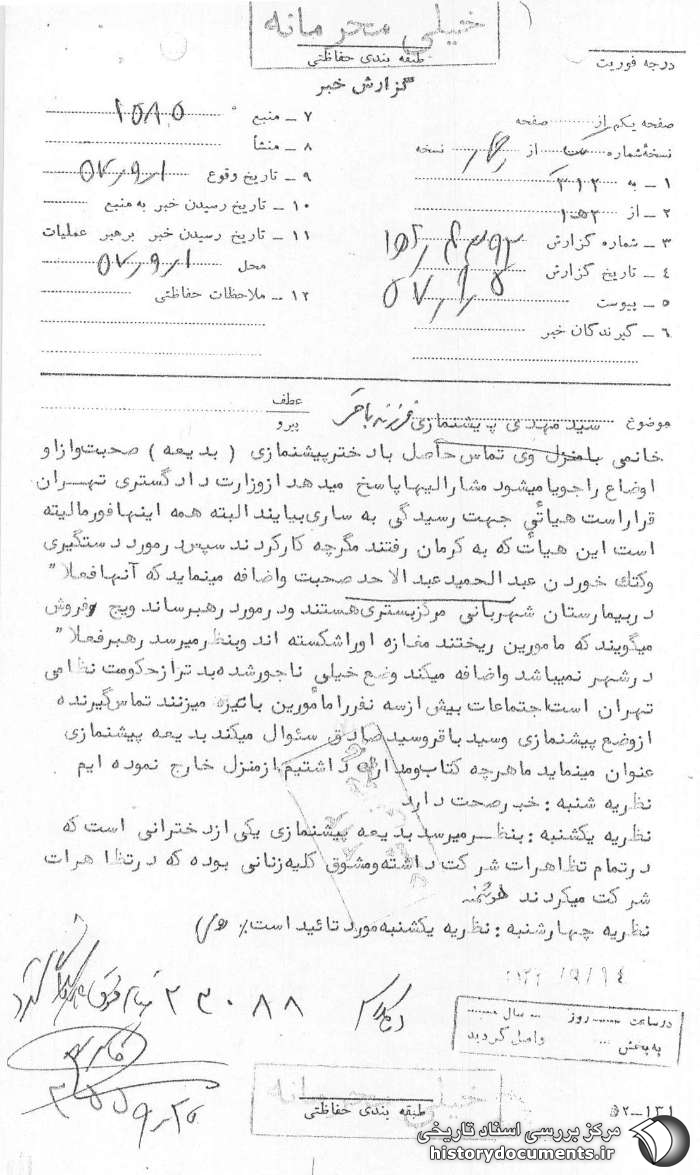 خیلی محرمانه
طبقه بندی حفاظتی
گزارش خبر
درجه فوریت
صفحه یکم از صفحه
نسخهٔ شماره یک از چهار نسخه
۱ ـ به ۳۱۲
۲ ـ از ۱ ه‍ ۲
۳ ـ شماره گزارش
۴ ـ تاریخ گزارش
۵ ـ پیوست
۶ ـ گیرندگان خبر
۷ ـ منبع ۱۵۸۰
۸ ـ منشأ
۹ ـ تاریخ وقوع ۵۷٫۹٫۱
۱۰ ـ تاریخ رسیدن خبر به منبع
۱۱ ـ تاریخ رسیدن خبر برهبر عملیات
محل ۵۷٫۹٫۱
۱۲ ـ ملاحظات حفاظتی
موضوع سید مهدی پیشنمازی فرزند باقر
عطف
پیرو
خانمی با منزل وی تماس حاصل با دختر پیشنمازی ( بدیعه ) صحبت و از او
اوضاع را جویا میشود مشارالیها پاسخ میدهد از وزارت دادگستری تهران
قرار است هیأتی جهت رسیدگی به ساری بیایند البته همه اینها فورمالیته
است این هیأت که به کرمان رفتند مگر چه کار کردند سپس در مورد دستگیری
و کتک خوردن عبدالحمید عبدالاحد صحبت و اضافه مینماید که آنها فعلا"
در بیمارستان شهربانی مرکز بستری هستند و در مورد رهبر ساندویچ فروش
میگویند که مامورین ریختند مغازه او را شکسته اند و بنظر میرسد رهبر فعلا"
در شهر نمیباشد و اضافه میکند وضع خیلی ناجور شده بدتر از حکومت نظامی
تهران است اجتماعات بیش از سه نفر را مأمورین با نیزه میزنند تماس گیرنده
از وضع پیشنمازی و سید باقر و سید صادق سئوال میکند بدیعه پیشنمازی
عنوان مینماید ما هرچه کتاب و مدارک داشتیم از منزل خارج نموده ایم
نظریه شنبه : خبر صحت دارد
نظریه یکشنبه : بنظر میرسد بدیعه پیشنمازی یکی از دخترانی است که
در تمام تظاهرات شرکت داشته و مشوق کلیه زنانی بوده که در تظاهرات
شرکت میکردند
نظریه چهارشنبه : نظریه یکشنبه مورد تائید است٪
۲۳۰۸۸
در ساعت روز سال
به بخش واصل گردید
خیلی محرمانه
طبقه بندی حفاظتی
۵۲ـ۱۳۱
مرکز بررسی اسناد تاریخی
historydocuments.ir